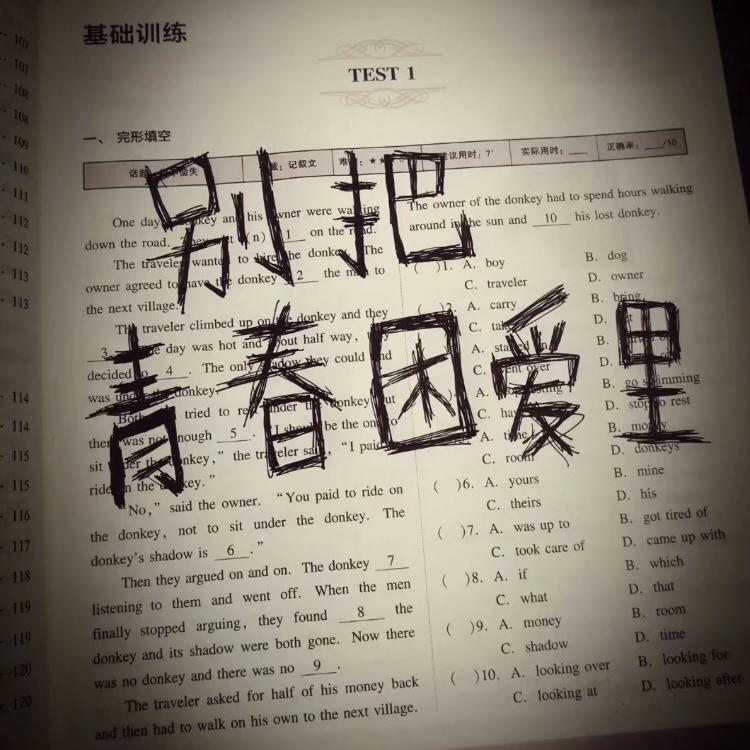 基础训练
TEST 1
一、 完形填空
话题 失 记叙文 难 ★★ 议用时：7' 实际用时：____ 正确率：____/10
别把
青春困爱里
One day and his owner were walking
down the road. (n) 1 on the road.
The traveler wanted to hire the donkey. The
owner agreed to have the donkey 2 the man to
the next village.
The traveler climbed up on the donkey and they
3 day was hot and about half way, they
decided to 4 . The only shadow they could find
was under donkey.
Both tried to rest under the donkey but
there was not enough 5 . “I should be the one to
sit under the donkey,” the traveler said, “I paid
ride on the donkey.”
No,” said the owner. “You paid to ride on
the donkey, not to sit under the donkey. The
donkey's shadow is 6 .”
Then they argued on and on. The donkey 7
listening to them and went off. When the men
finally stopped arguing, they found 8 the
donkey and its shadow were both gone. Now there
was no donkey and there was no 9 .
The traveler asked for half of his money back
and then had to walk on his own to the next village.
The owner of the donkey had to spend hours walking
around in the sun and 10 his lost donkey.
( )1. A. boy B. dog
C. traveler D. owner
( )2. A. carry B. bring
C. D.
A. B.
C. went over D.
A. B. go swimming
C. D. stop to rest
A. B. money
C. room D. donkeys
( )6. A. yours B. mine
C. theirs D. his
( )7. A. was up to B. got tired of
C. took care of D. came up with
( )8. A. if B. which
C. what D. that
( )9. A. money B. room
C. shadow D. time
( )10. A. looking over B. looking for
C. looking at D. looking after
103
107
108
108
109
110
111
112
112
113
113
114
114
115
115
116
117
118
119
119
120
120